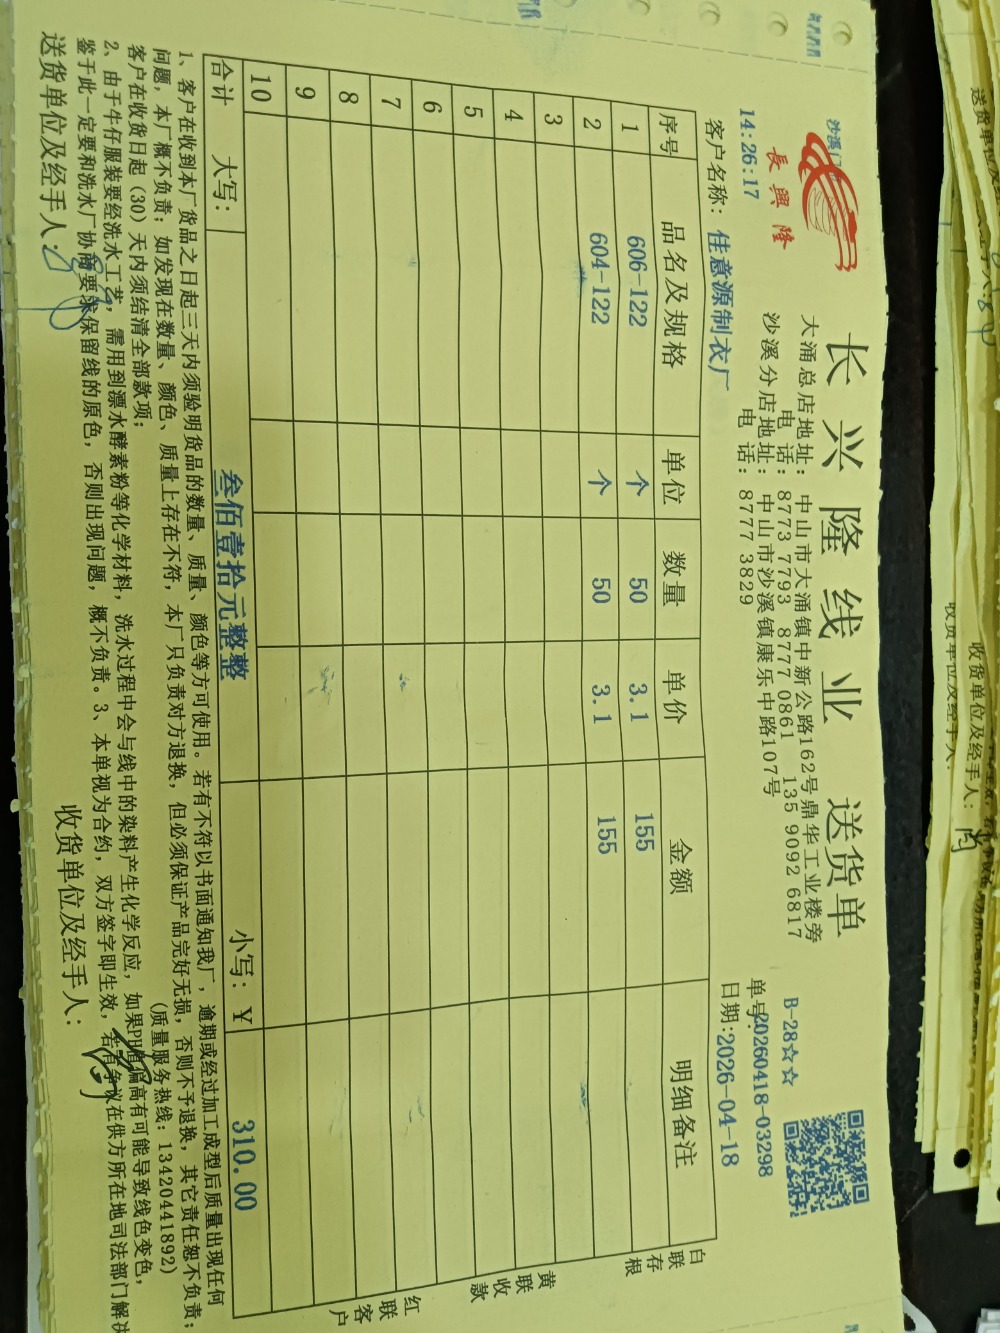 长兴隆线业 送货单
長興隆
沙溪门
14:26:17
大涌总店地址：中山市大涌镇中新公路162号鼎华工业楼旁
电 话：8773 7793 8777 0861 135 9092 6817
沙溪分店地址：中山市沙溪镇康乐中路107号
电 话：8777 3829
B-28☆☆
单号:20260418-03298
客户名称：佳意源制衣厂
日期:2026-04-18
序号 品名及规格 单位 数量 单价 金额 明细备注
1 606-122 个 50 3.1 155
2 604-122 个 50 3.1 155
3
4
5
6
7
8
9
10
合计 大写： 叁佰壹拾元整整 小写：￥ 310.00
白联存根
黄联收款
红联客户
1、客户在收到本厂货品之日起三天内须验明货品的数量、质量、颜色等方可使用。若有不符以书面通知我厂，逾期或经过加工成型后质量出现任何
问题，本厂概不负责；如发现在数量、颜色、质量上存在不符，本厂只负责对方退换，但必须保证产品完好无损，否则不予退换，其它责任恕不负责；
客户在收货日起（30）天内须结清全部款项；
（质量服务热线：13420441892）
2、由于牛仔服装要经洗水工艺，需用到漂水酵素粉等化学材料，洗水过程中会与线中的染料产生化学反应，如果PH值偏高有可能导致线色变色，
鉴于此一定要和洗水厂协商要求保留线的原色，否则出现问题，概不负责。3、本单视为合约，双方签字即生效，若有争议在供方所在地司法部门解决
送货单位及经手人：
收货单位及经手人：
收货单位及经手人：
收货单位及经手人：